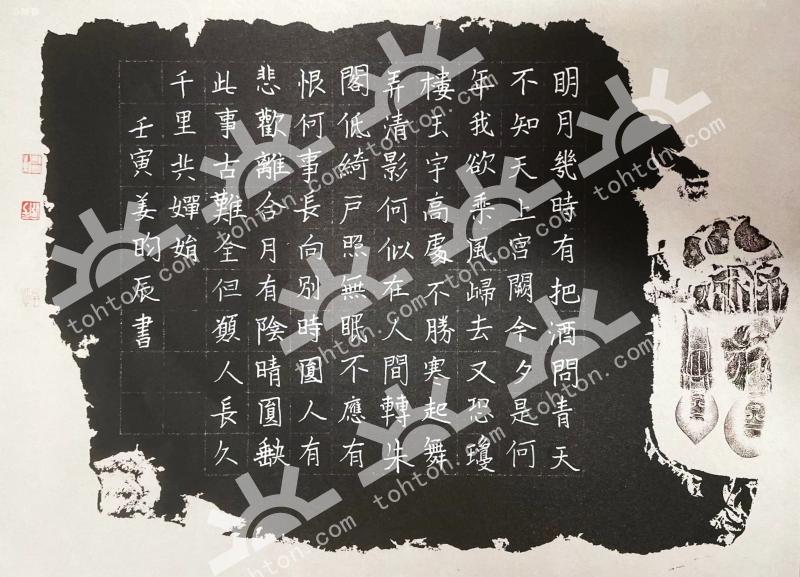 明月幾時有把酒問青天
不知天上宮闕今夕是何
年我欲乘風歸去又恐瓊
樓玉宇高處不勝寒起舞
弄清影何似在人間轉朱
閣低綺戶照無眠不應有
恨何事長向別時圓人有
悲歡離合月有陰晴圓缺
此事古難全但願人長久
千里共嬋娟
壬寅姜昀辰書
tohton.com
tohton.com
tohton.com
tohton.com
tohton.com
tohton.com
tohton.com
tohton.com
tohton.com